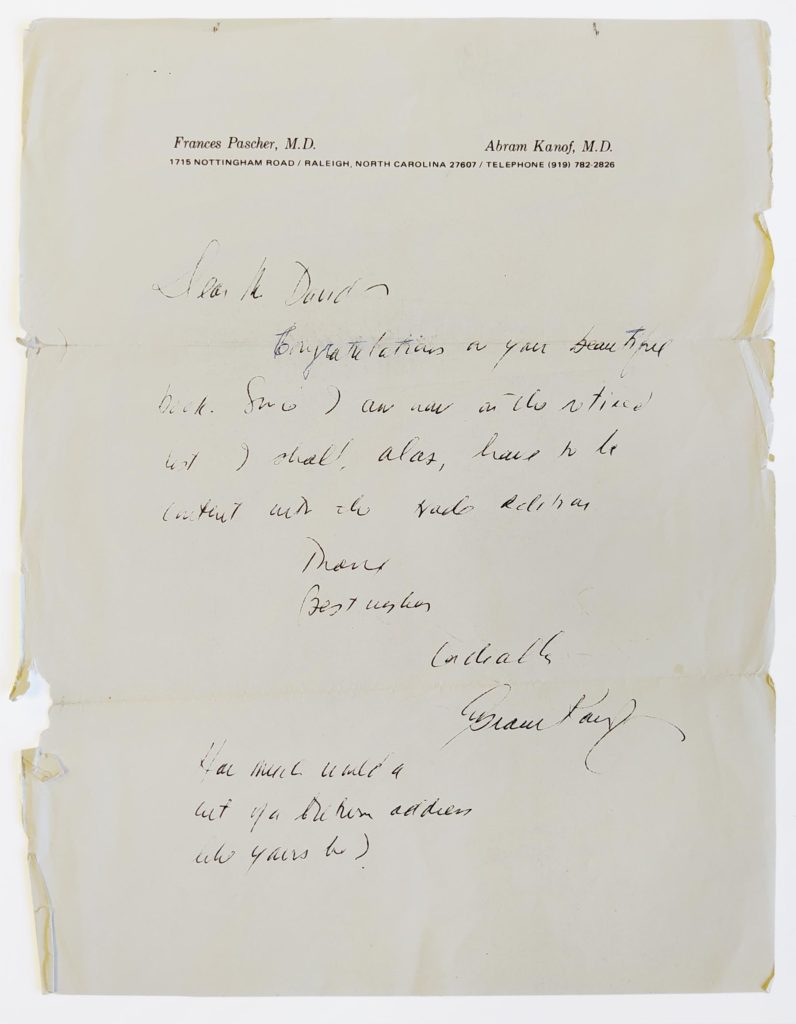 Frances Pascher, M.D. Abram Kanof, M.D.
1715 NOTTINGHAM ROAD / RALEIGH, NORTH CAROLINA 27607 / TELEPHONE (919) 782-2826
Dear Mr David
Congratulations on your beautiful
book. Since I am now on the retired
list I shall, alas, have to be
content with the trade edition
Best wishes
Cordially
Abram Kanof
How much would a
cut of a return address
like yours be?